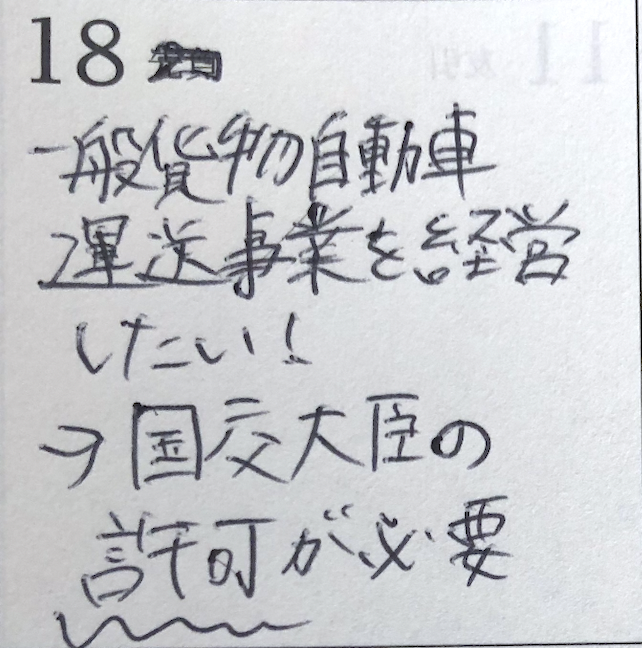 18
一般貨物自動車
運送事業を経営
したい!
→国交大臣の
許可が必要